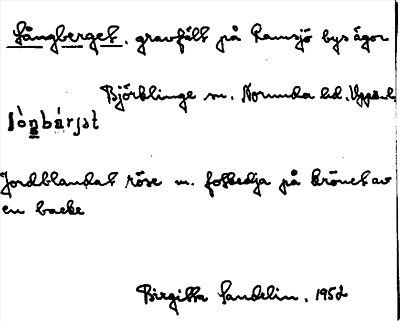 Långberget, gravfält på Ramsjö bys ägor
Björklinge sn. Norunda hd. Uppsal.
Jordblandat röse m. fotkedja på krönet av
en backe
Birgitta Sandelin, 1952